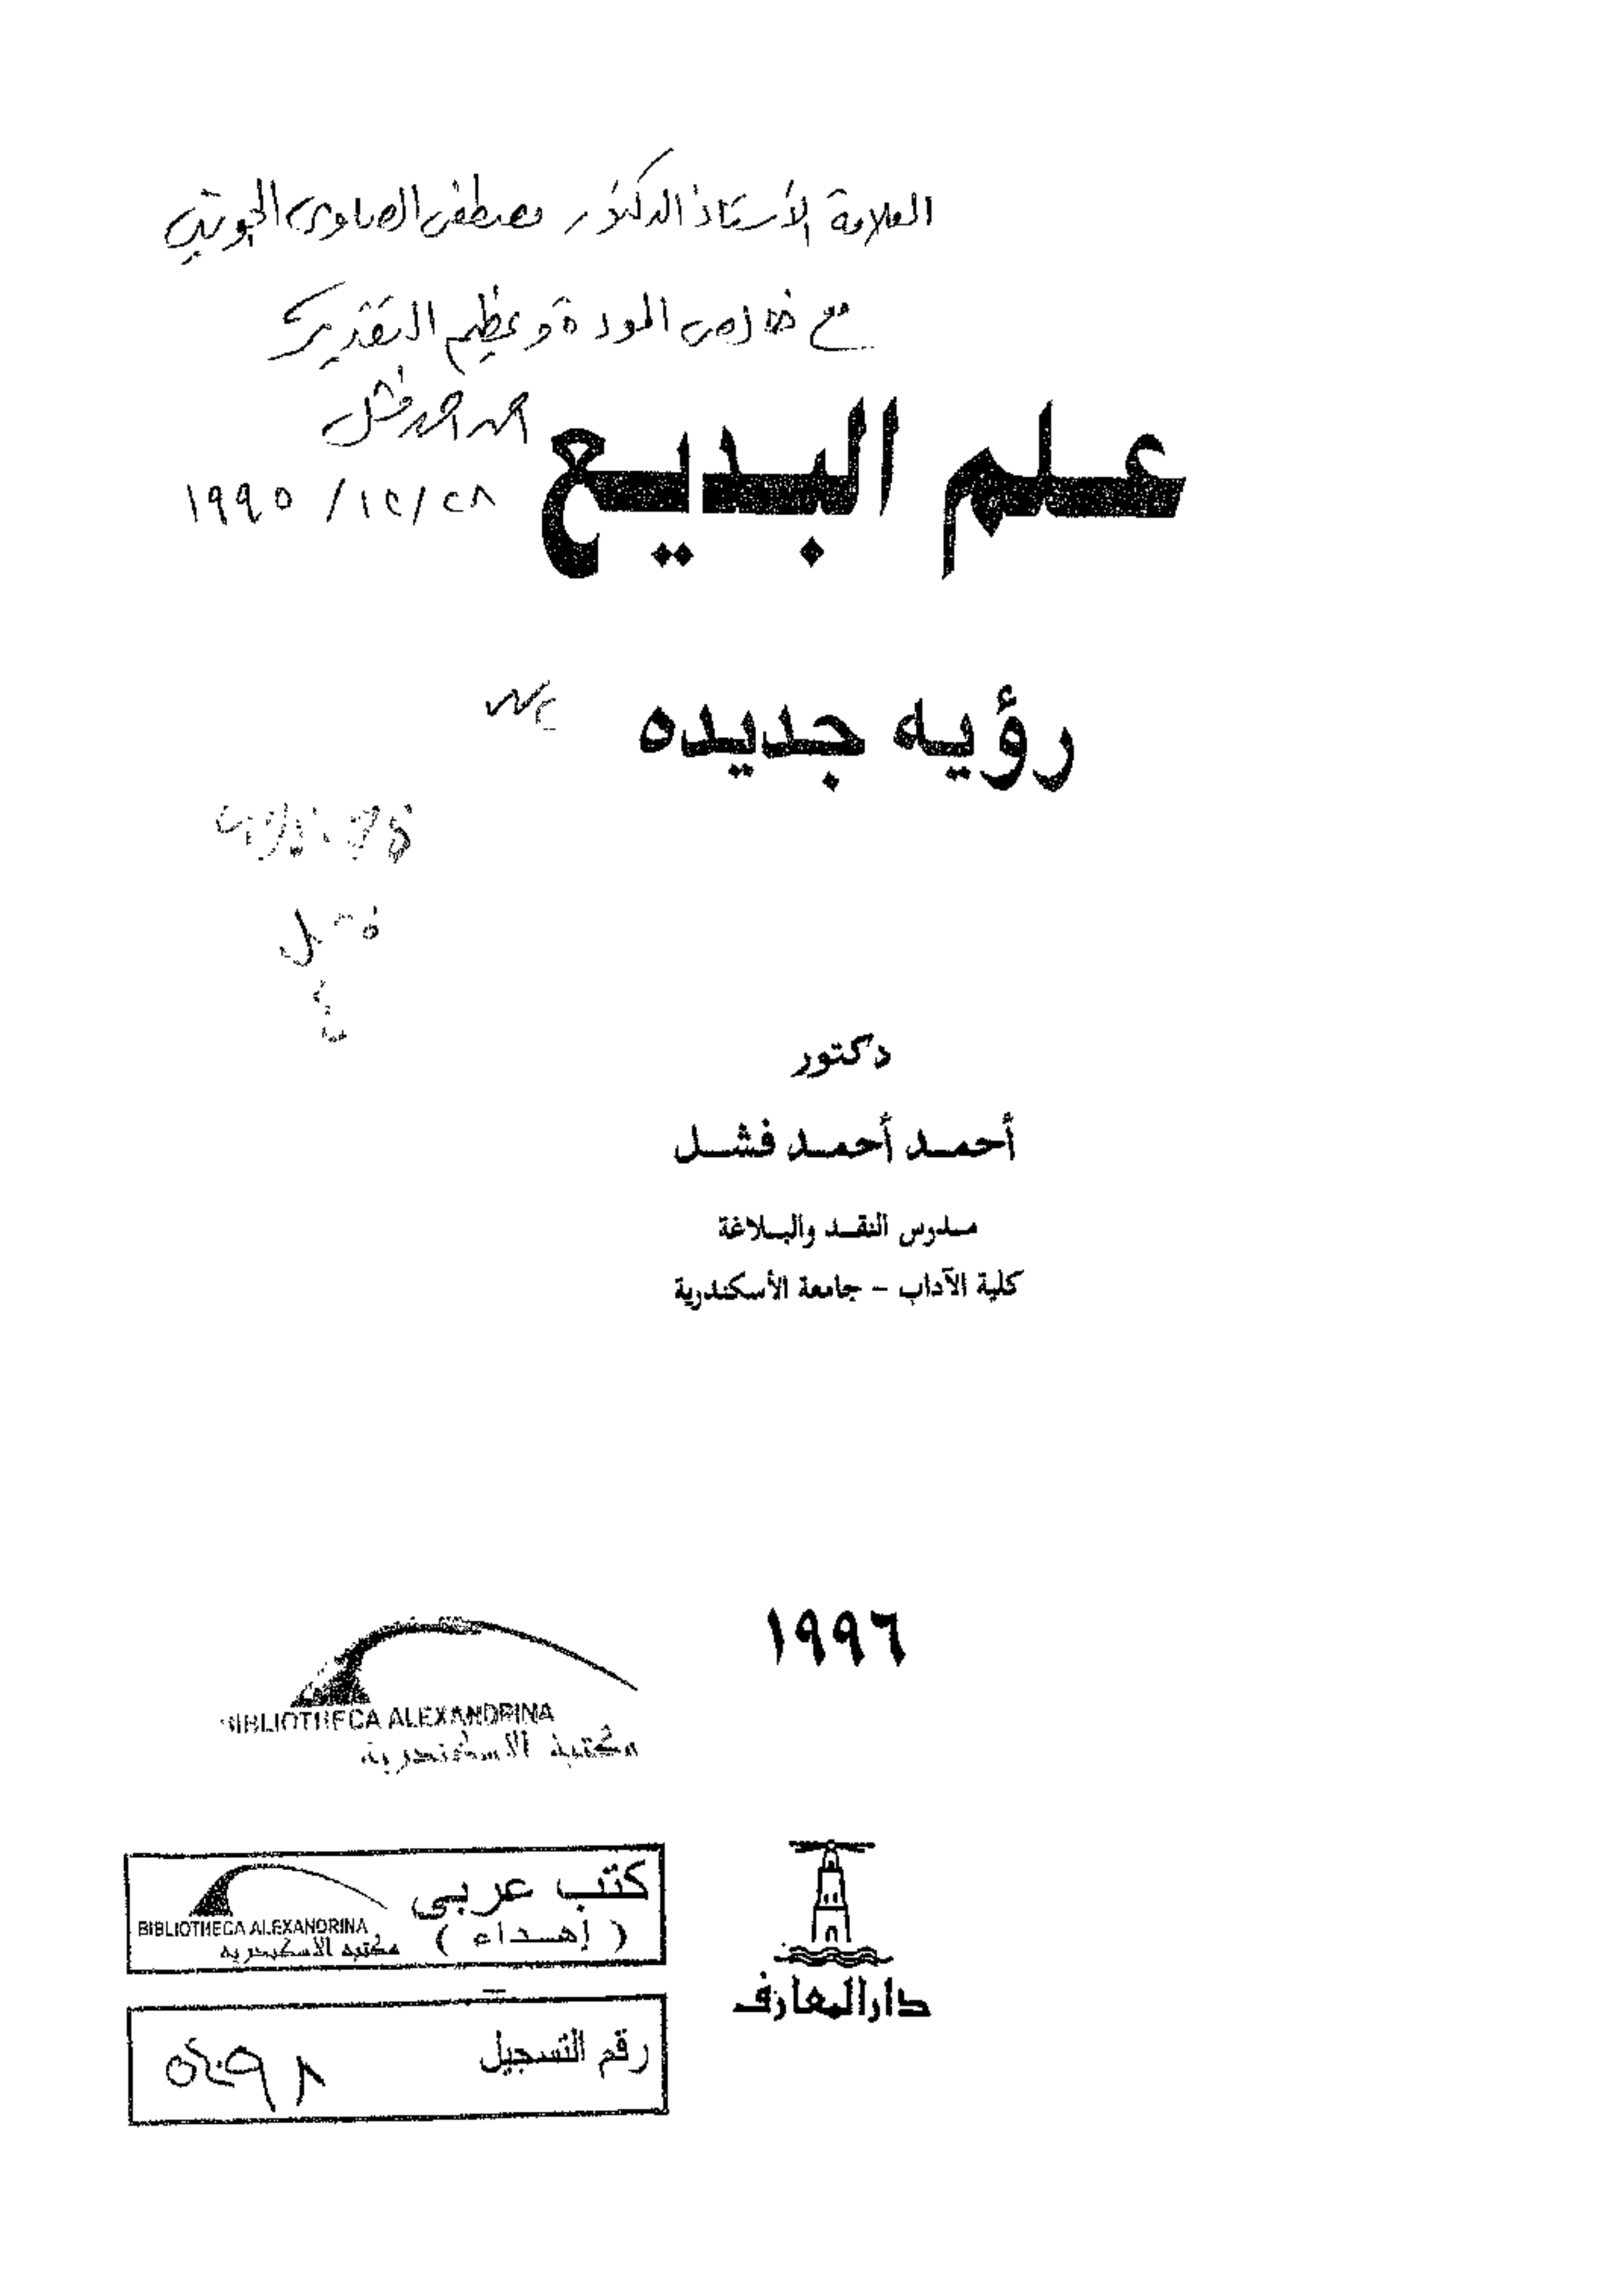 العلامة الأستاذ الدكتور مصطفى الصاوى الجوينى
مع خالص المودة وعظيم التقدير
احمد احمد فشل
١٩٩٥ / ١٢ / ٢٨
علـم البـديـع
رؤيه جديده
دكتور
أحمـد أحمـد فشـل
مـدرس النقـد والبـلاغة
كلية الآداب - جامعة الأسكندرية
١٩٩٦
BIBLIOTHECA ALEXANDRINA
مكتبة الاسكندرية
كتب عربى
( إهـداء )
BIBLIOTHECA ALEXANDRINA
مكتبة الاسكندرية
رقم التسجيل
دار المعارف